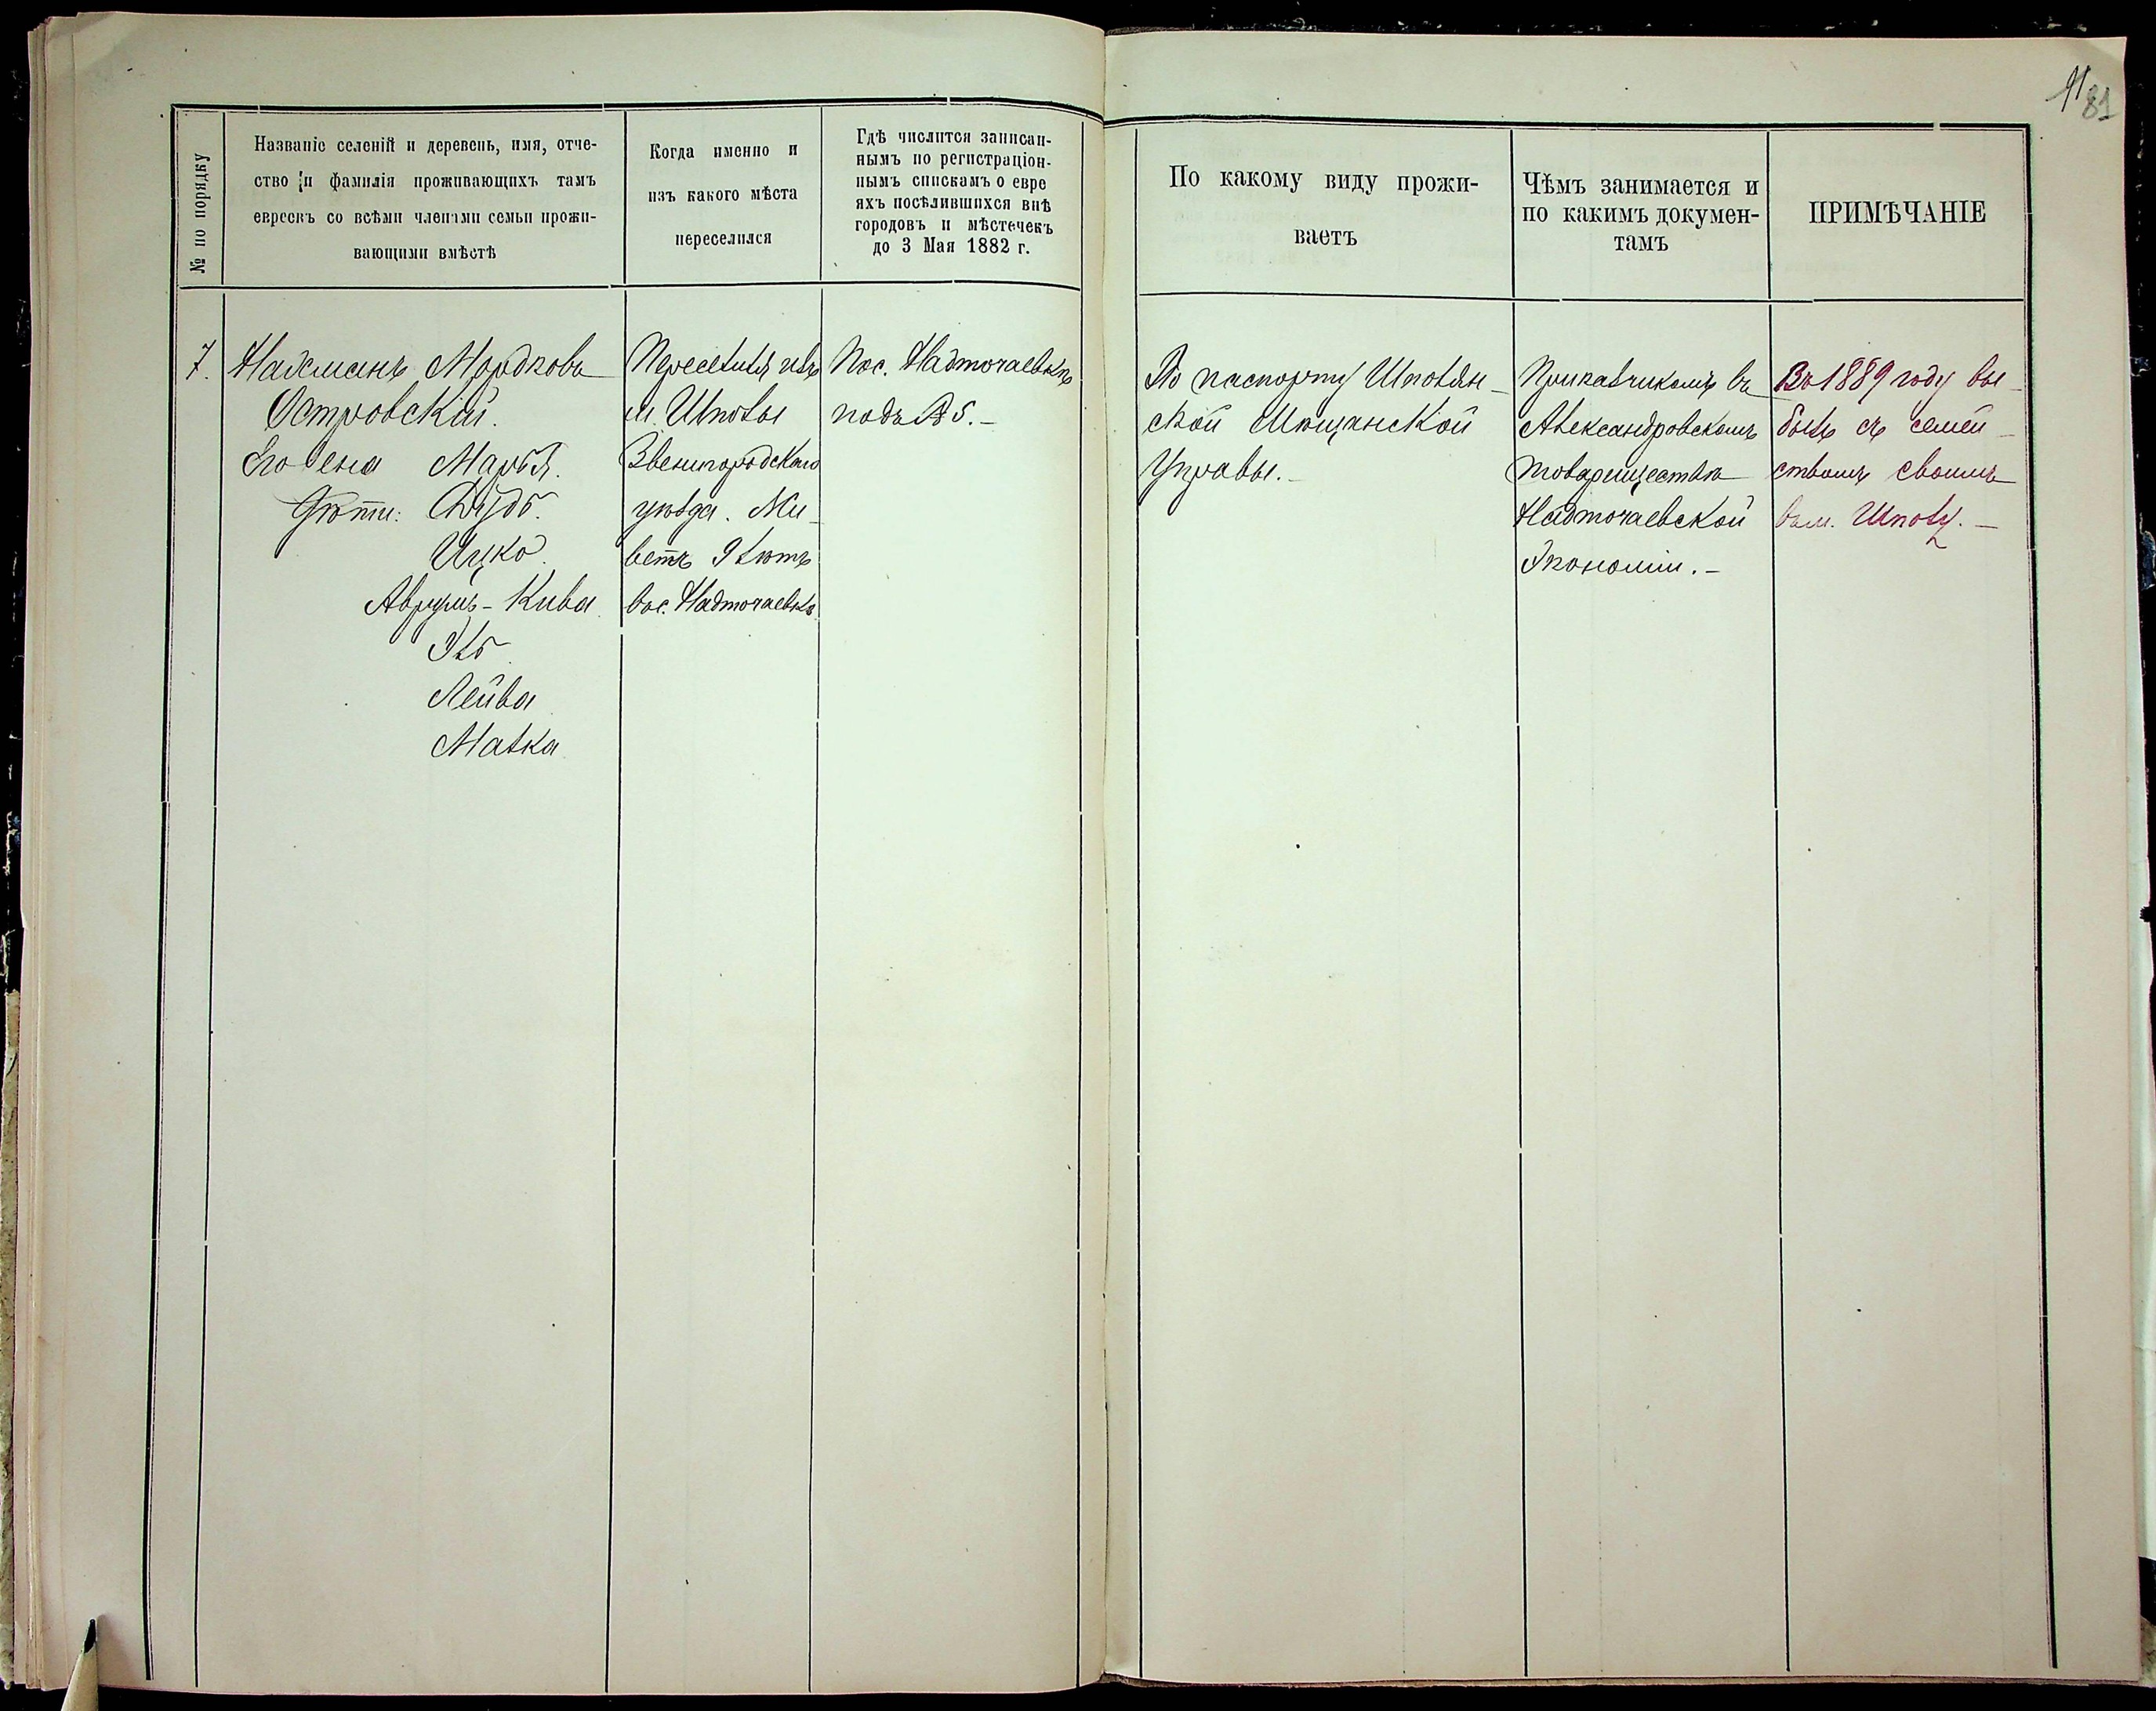 11
81
№ по порядку
Названіе селеній и деревень, имя, отче-
ство и фамилія проживающихъ тамъ
евреевъ со всѣми членами семьи прожи-
вающими вмѣстѣ
Когда именно и
изъ какого мѣста
переселился
Гдѣ числится записан-
нымъ по регистраціон-
нымъ спискамъ о евре
яхъ посѣлившихся внѣ
городовъ и мѣстечекъ
до 3 Мая 1882 г.
По какому виду прожи-
ваетъ
Чѣмъ занимается и
по какимъ докумен-
тамъ
ПРИМѢЧАНІЕ
7.
Нахманъ Мордковъ
Островскій.
Его жена Марья.
Дѣти:
Ицко
Аврумъ-Кива
Эль
Лейва
Малка
м. Шполы
Звенигородскаго
уѣзда. Жи-
ветъ 9 лѣтъ
въ с. Надточаевкѣ
По с. Надточаевкѣ
подъ № 5.-
По паспорту Шполян-
ской Мѣщанской
Управы.-
Приказчикомъ въ
Александровскомъ
товариществѣ
Надточаевской
Экономіи.-
Въ 1889 году вы-
былъ съ семей-
ствомъ своимъ
въ м. Шполу.-